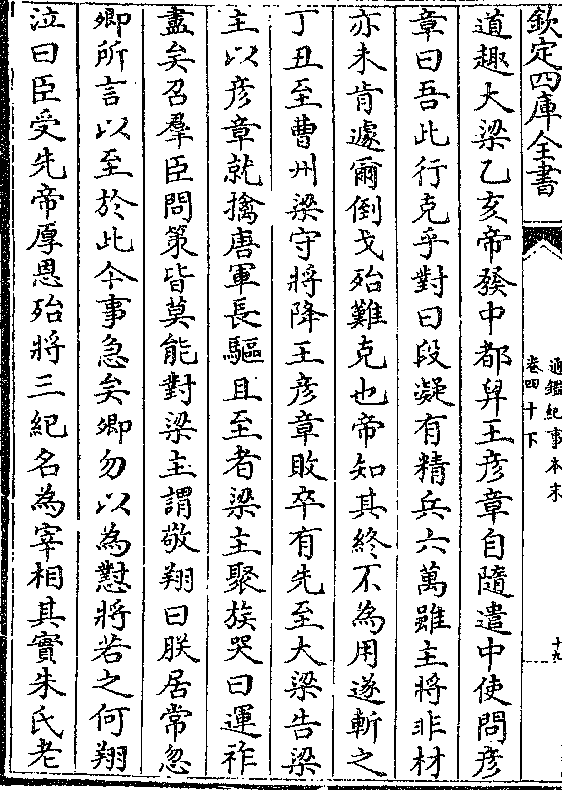 欽定四庫全書
通鑑紀事本末
卷四十下
十九
道趣大梁乙亥帝發中都舁王彥章自隨遣中使問彥
章曰吾此行克乎對曰段凝有精兵六萬雖主將非材
亦未肯遽爾倒戈殆難克也帝知其終不為用遂斬之
丁丑至曹州梁守將降王彥章敗卒有先至大梁告梁
主以彥章就擒唐軍長驅且至者梁主聚族哭曰運祚
盡矣召羣臣問策皆莫能對梁主謂敬翔曰朕居常忽
卿所言以至於此今事急矣卿勿以為懟將若之何翔
泣曰臣受先帝厚恩殆將三紀名為宰相其實朱氏老